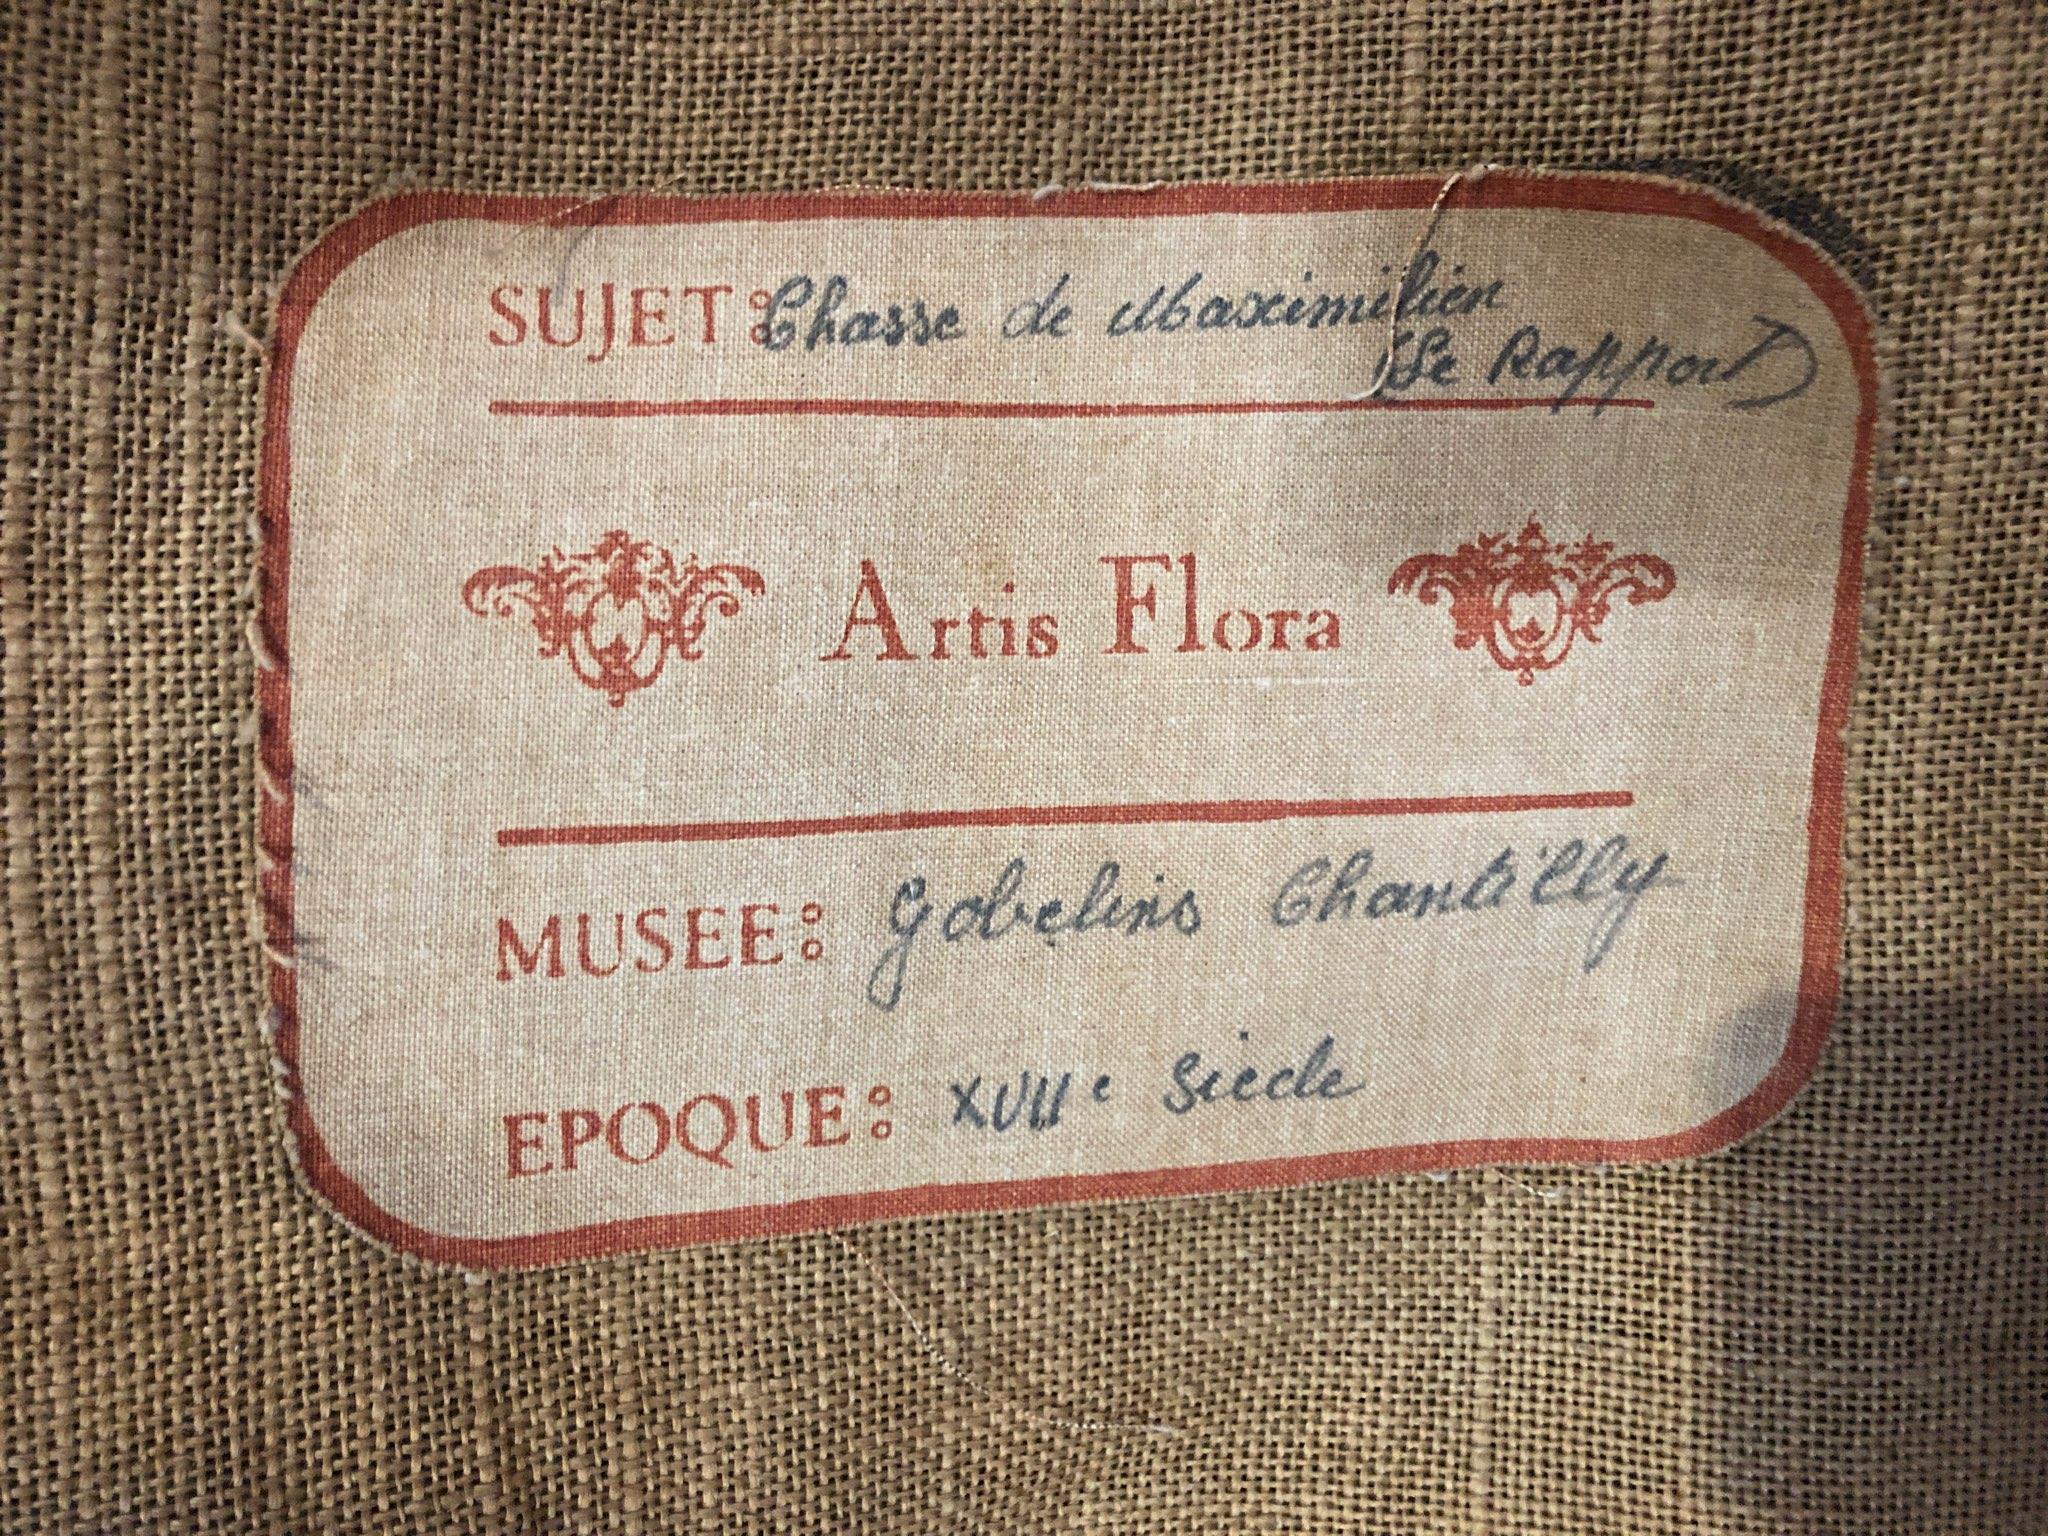 SUJET: Chasse de Maximilien
(Le Rapport)
Artis Flora
MUSEE: Gobelins Chantilly
EPOQUE: XVIIe Siècle